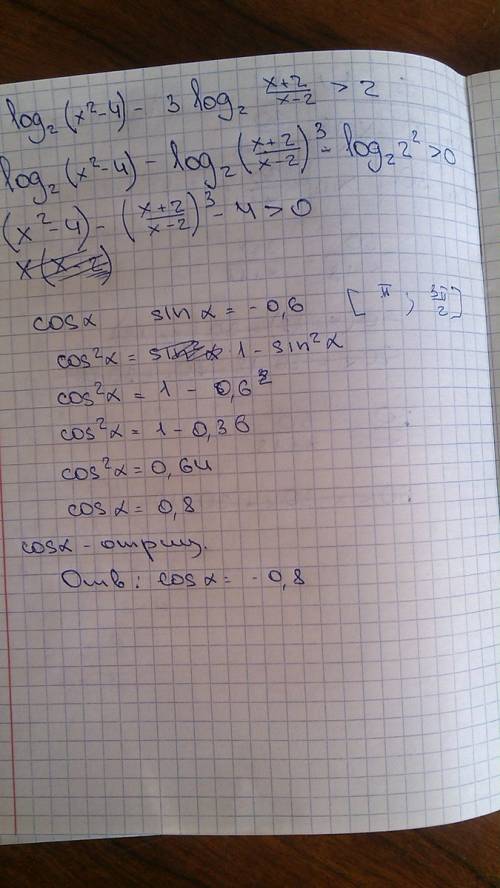 log₂(x²-4) - 3 log₂ (x+2)/(x-2) > 2
log₂(x²-4) - log₂((x+2)/(x-2))³ - log₂2² > 0
(x²-4) - ((x+2)/(x-2))³ - 4 > 0
x(x-2)
cosα sinα = -0,6 [π; 3π/2]
cos²α = sin²α 1 - sin²α
cos²α = 1 - 0,6²
cos²α = 1 - 0,36
cos²α = 0,64
cosα = 0,8
cosα - отриц.
Отв: cosα = -0,8